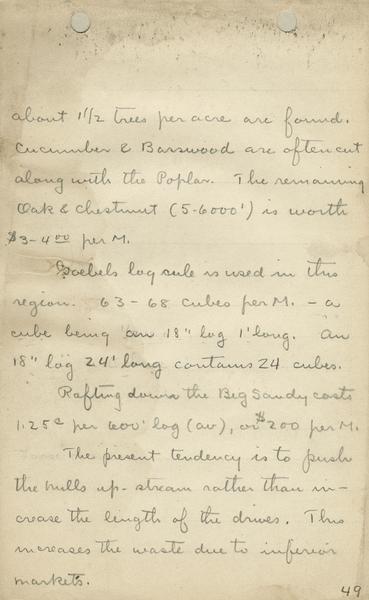 about 1 1/2 trees per acre are found.
Cucumber & Basswood are often cut
along with the Poplar. The remaining
Oak & Chestnut (5-6000') is worth
$3-4 00 per M.
Goebels log rule is used in this
region. 63-68 cubes per M. - a
cube being an 18" log 1' long. An
18" log 24' long contains 24 cubes.
Rafting down the Big Sandy costs
1.25¢ per 600' log (av), or $200 per M.
The present tendency is to push
the mills up-stream rather than in-
crease the length of the drives. This
increases the waste due to inferior
markets.
49